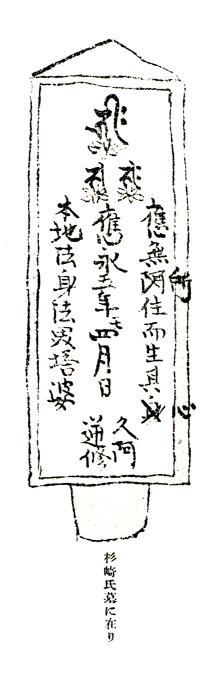 應無所住而生其心
應永五年四月日
本地法身法界塔婆
久阿
逆修
杉崎氏墓に在り